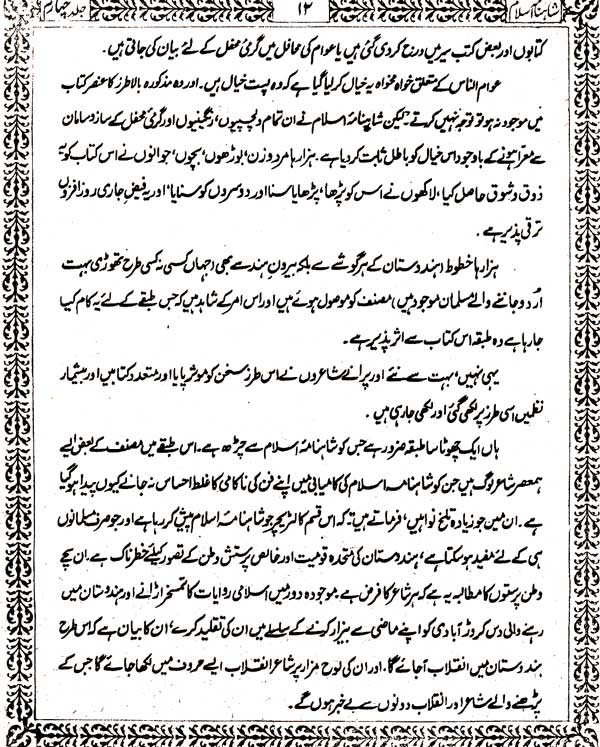 شاہنامۂ اسلام ۱۲ جلد چہارم
کتابوں اور بعض کتب سیر میں درج کر دی گئی ہیں یا عوام کی محافل میں گرمیِ محفل کے لئے بیان کی جاتی ہیں.
عوام الناس کے متعلق خواہ مخواہ یہ خیال کر لیا گیا ہے کہ وہ پست خیال ہیں. اور وہ مذکورہ بالا طرز کا عنصر کتاب
میں موجود نہ ہو تو توجہ نہیں کرتے. لیکن شاہنامۂ اسلام نے ان تمام دلچسپیوں، رنگینیوں اور گرمیِ محفل کے ساز و سامان
سے معرا ہونے کے باوجود اس خیال کو باطل ثابت کر دیا ہے. ہزارہا مرد و زن، بوڑھوں، بچوں، جوانوں نے اس کتاب کو بہ
ذوق و شوق حاصل کیا، لاکھوں نے اس کو پڑھا، پڑھایا سنا اور دوسروں کو سنایا، اور یہ فیض جاری روز افزوں
ترقی پذیر ہے.
ہزارہا خطوط (ہندوستان کے ہر گوشے سے بلکہ بیرونِ ہند سے بھی (جہاں کسی نہ کسی طرح تھوڑی بہت
اُردو جاننے والے مسلمان موجود ہیں) مصنف کو موصول ہوئے ہیں اور اس امر کے شاہد ہیں کہ جس طبقے کے لئے یہ کام کیا
جا رہا ہے وہ طبقہ اس کتاب سے اثر پذیر ہے.
یہی نہیں، بہت سے نئے اور پرانے شاعروں نے اس طرز سخن کو موثر پایا اور متعدد کتابیں اور بیشمار
نظمیں اسی طرز پر لکھی گئی اور لکھی جا رہی ہیں.
ہاں ایک چھوٹا سا طبقہ ضرور ہے جس کو شاہنامۂ اسلام سے چڑھ ہے. اس طبقے میں مصنف کے بعض ایسے
ہمعصر شاعر لوگ ہیں جن کو شاہنامہ اسلام کی کامیابی میں اپنے فن کی ناکامی کا غلط احساس نہ جانے کیوں پیدا ہو گیا
ہے. ان میں جو زیادہ تلخ نوا ہیں، فرماتے ہیں کہ اس قسم کا لٹریچر جو شاہنامۂ اسلام پیش کر رہا ہے اور جو صرف مسلمانوں
ہی کے لئے مفید ہو سکتا ہے، ہندوستان کی متحدہ قومیت اور خالص پرستش وطن کے تصور کیلئے خطرناک ہے. ان سچے
وطن پرستوں کا مطالبہ یہ ہے کہ ہر شاعر کا فرض ہے. موجودہ دور میں اسلامی روایات کا تمسخر اڑانے اور ہندوستان میں
رہنے والی دس کروڑ آبادی کو اپنے ماضی سے بیزار کرنے کے سلسلے میں ان کی تقلید کرے، ان کا بیان ہے کہ اس طرح
ہندوستان میں انقلاب آ جائے گا. اور ان کی لوح مزار پر شاعر انقلاب ایسے حروف میں لکھا جائے گا جس کے
پڑھنے والے شاعر اور انقلاب دونوں سے بے خبر ہوں گے.